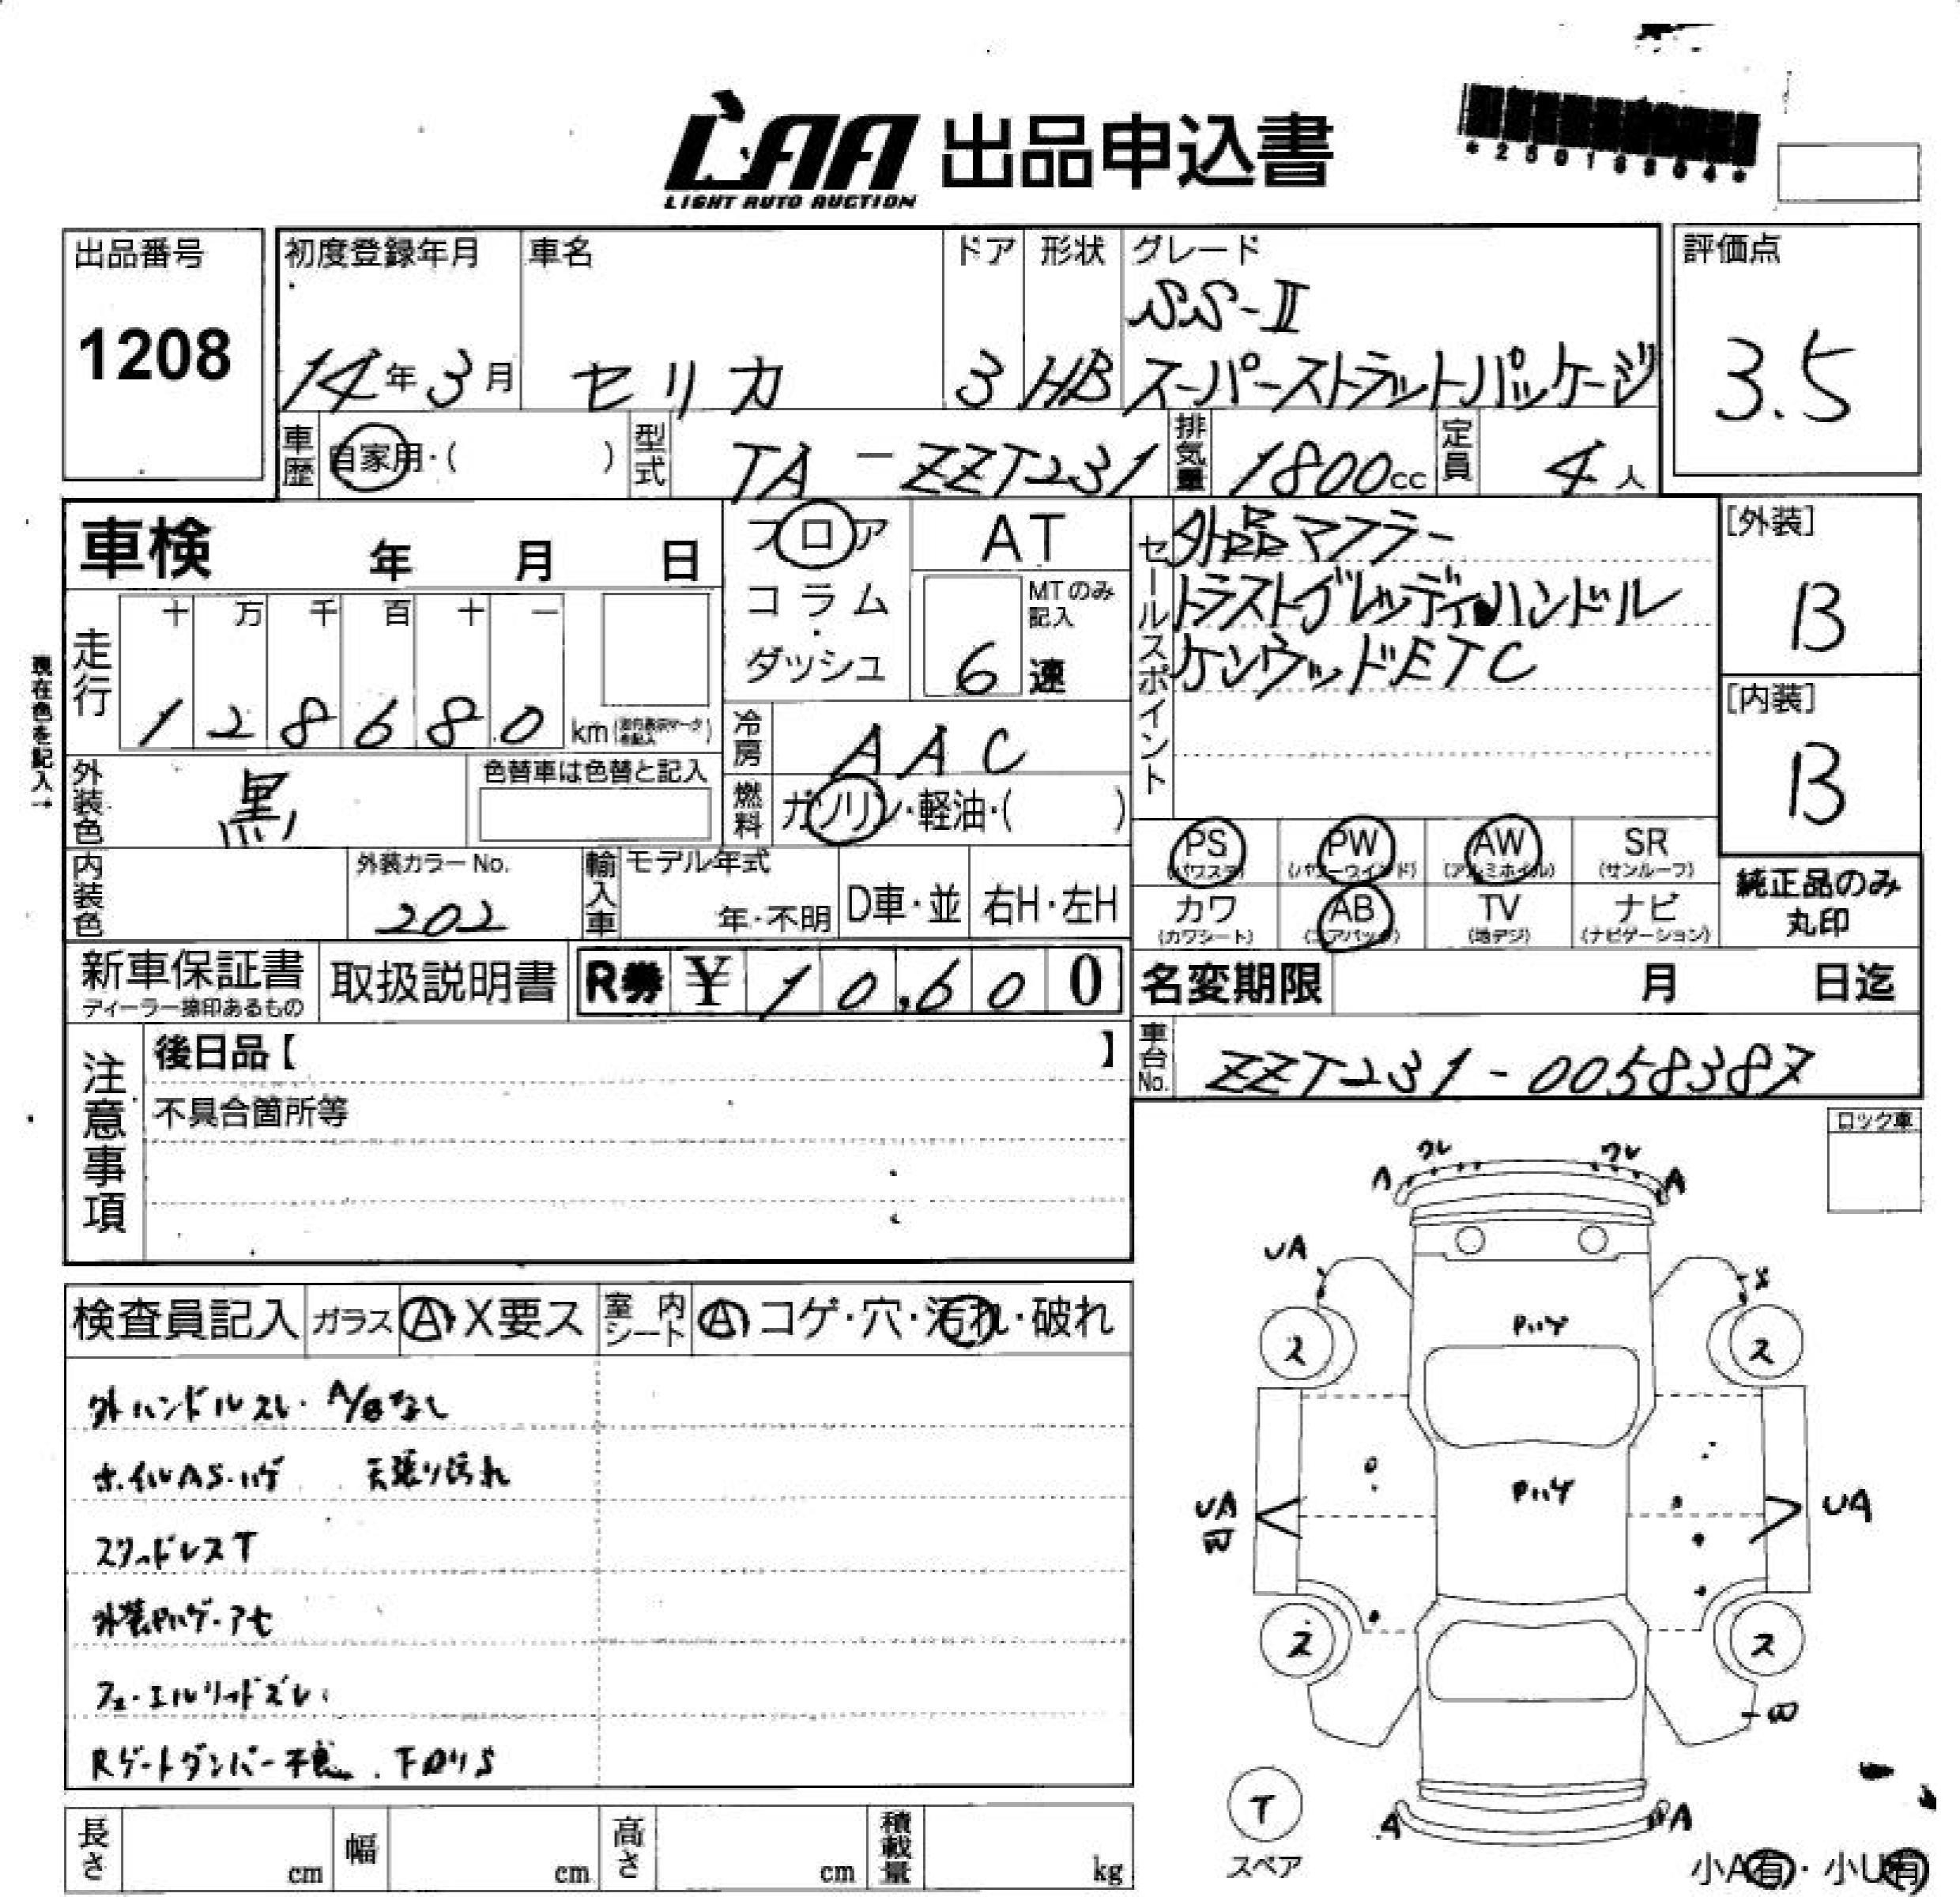 LAA
LIGHT AUTO AUCTION
出品申込書
出品番号
1208
初度登録年月
14年3月
車名
セリカ
ドア
3
形状
HB
グレード
SS-Ⅱ
スーパーストラットパッケージ
評価点
3.5
車歴
自家用・( )
型式
TA-ZZT231
排気量
1800cc
定員
4人
車検 年 月 日
フロア
コラム
・
ダッシュ
AT
MTのみ
記入
6速
セールスポイント
外品マフラー
トラストグレッディハンドル
ケンウッドETC
[外装]
B
[内装]
B
現在色を記入→
走行
十 万 千 百 十 一
128680 km
冷房
AAC
外装色
黒
色替車は色替と記入
燃料
ガソリン・軽油・( )
PS
(パワステ)
PW
(パワーウインド)
AW
(アルミホイル)
SR
(サンルーフ)
カワ
(カワシート)
AB
(エアバッグ)
TV
(地デジ)
ナビ
(ナビゲーション)
純正品のみ
丸印
内装色
外装カラーNo.
202
輸入車
モデル年式
年・不明
D車・並
右H・左H
新車保証書
ディーラー捺印あるもの
取扱説明書
R券 ¥10,600
名変期限 月 日迄
注意事項
後日品【 】
不具合箇所等
車台No.
ZZT231-0058387
ロック車
検査員記入
ガラス
A X要ス
室内シート
A コゲ・穴・汚れ・破れ
外ハンドルスレ・A/Bなし
ホイルAS・ハゲ 天張り汚れ
スタッドレスT
外装Pハゲ・アセ
フューエルリッドズレ
Rゲートダンパー不良. 下回りS
ワレ ワレ
A A
UA
Pハゲ
ス ス
Pハゲ
UA UA
ス ス
T
スペア
A A
小A有・小U有
長さ cm
幅 cm
高さ cm
積載量 kg